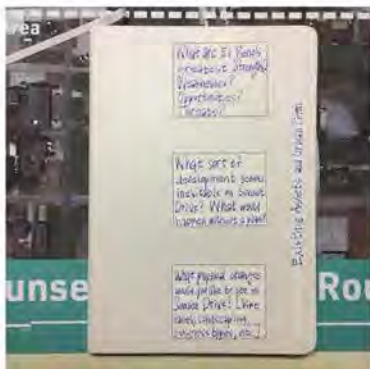 rea
What are El Rio's
greatest Strengths?
Weaknesses?
Opportunities?
Threats?
What sort of
development seems
inevitable on Sunset
Drive? What would
happen without a plan?
What physical changes
would you like to see on
Sunset Drive? (bike
lanes, landscaping,
business types, etc.)
Existing Assets and
unse
Rou